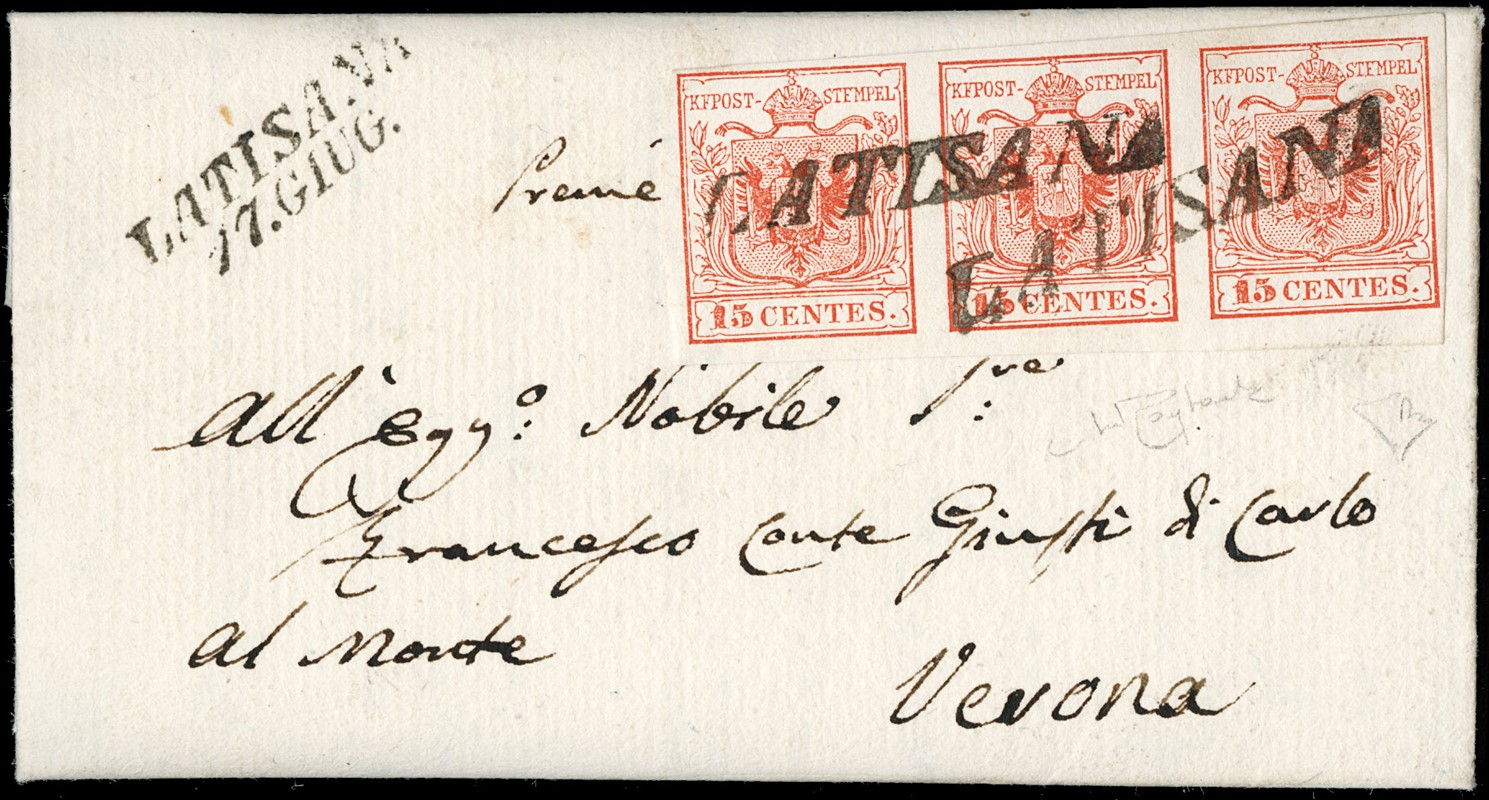 LATISANA
17.GIUG.
Preme
KKPOST-STEMPEL
15 CENTES.
KKPOST-STEMPEL
15 CENTES.
KKPOST-STEMPEL
15 CENTES.
LATISANA
LATISANA
All' Egg.o: Nobile S.re
Francesco Conte Giusti di Carlo
al Monte
Verona